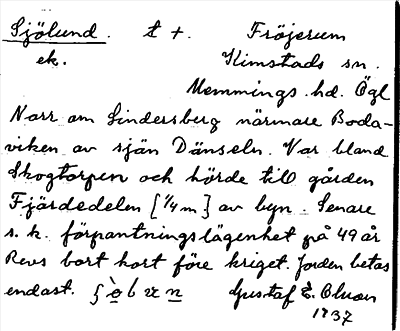 Sjölund. t +. Fröjerum
ek. Kimstads sn.
Memmings hd. Ögl
Norr om Lindersberg närmare Boda-
viken av sjön Dänseln. Var bland
Skogtorpen och hörde till gården
Fjärdedelen [¼ m] av byn. Senare
s. k. förpantningslägenhet på 49 år
Revs bort kort före kriget. Jorden betas
endast. Gustaf E. Olson
1937